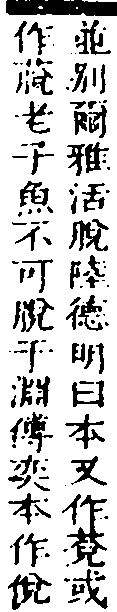 並別爾雅活脫陸德明曰本又作莌或
作䐁老子魚不可脫于淵傅奕本作侻